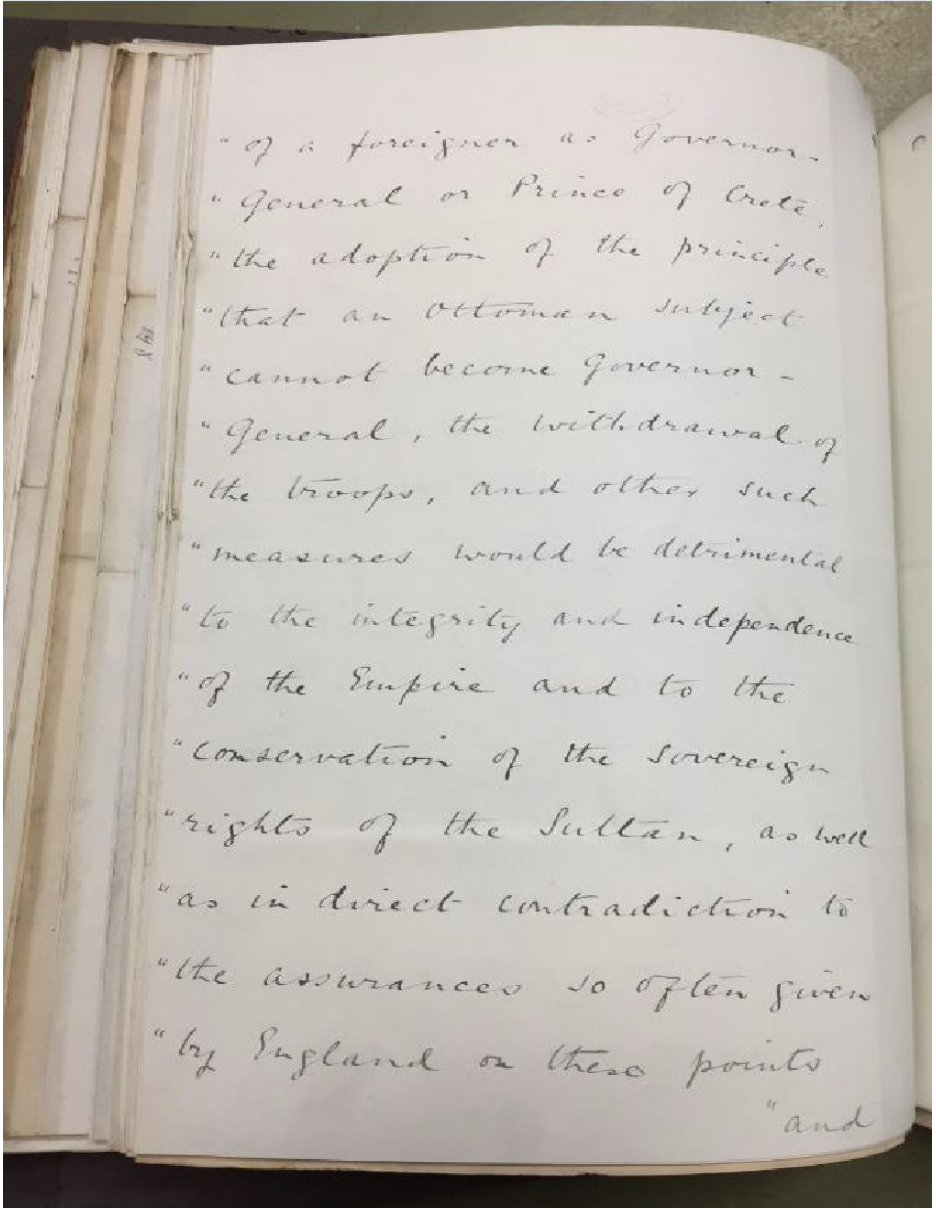 "of a foreigner as Governor-
"General or Prince of Crete,
"the adoption of the principle
"that an Ottoman subject
"cannot become Governor-
"General, the withdrawal of
"the troops, and other such
"measures would be detrimental
"to the integrity and independence
"of the Empire and to the
"conservation of the Sovereign
"rights of the Sultan, as well
"as in direct contradiction to
"the assurances so often given
"by England on these points
"and